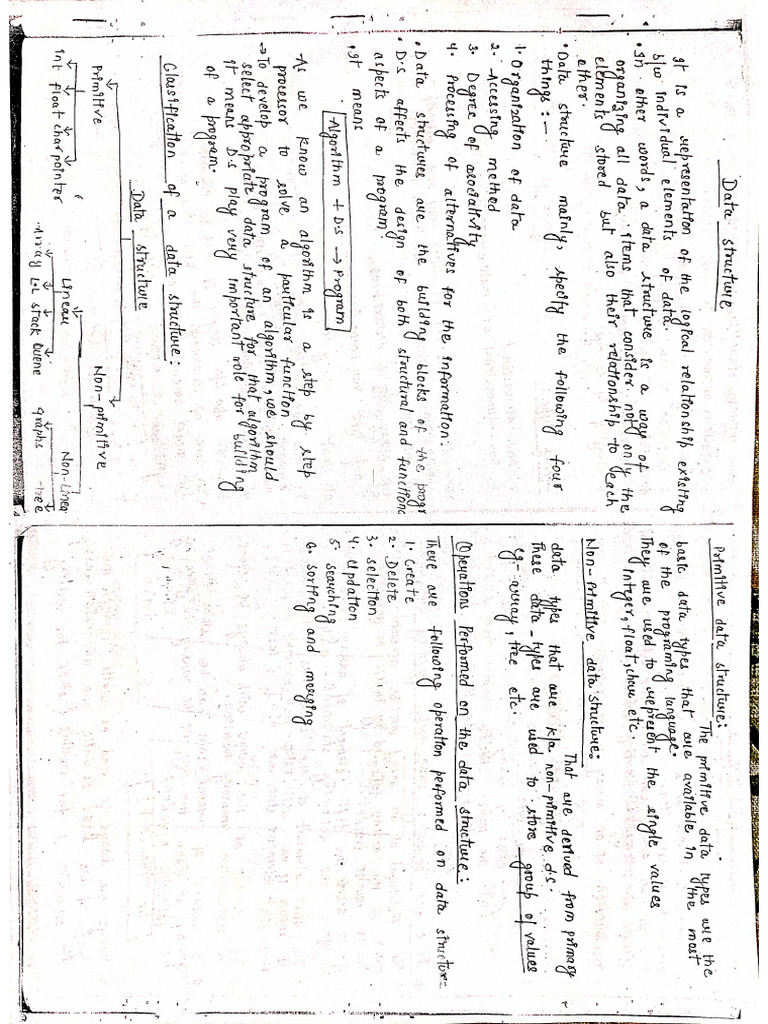 Data structure
It is a representation of the logical relationship existing
b/w individual elements of data.
• In other words, a data structure is a way of
organizing all data items that consider not only the
elements stored but also their relationship to each
other.
• Data structure mainly, specify the following four
things:-
1. Organization of data
2. Accessing method
3. Degree of asociativity
4. Processing of alternatives for the information.
• Data structures are the building blocks of the progr
• D.s affects the design of both structural and functiona
aspects of a program.
It means
Algorithm + D.s → Program
-As we know an algorithm is a step by step
processor to solve a particular function.
→To develop a program of an algorithm, we should
select appropriate data structure for that algorithm
it means D.s play very important role for building
of a program.
Classification of a data structure:
Data structure
Primitive Non-primitive
Int float char pointer
Linear Non-Linear
Array L.L stack Queue graphs tree
Primitive data structure:
The primitive data types are the
basic data types that are available in the most
of the programing language.
They are used to represent the single values
Integer, float, char etc.
Non-primitive data structure:
That are derived from primary
data types that are k/a non-primitive d.s.
These data-types are used to store group of values
eg- array, tree etc.
Operations Performed on the data structure:
There are following operation performed on data structure
1. Create
2. Delete
3. selection
4. Updation
5. searching
6. sorting and merging